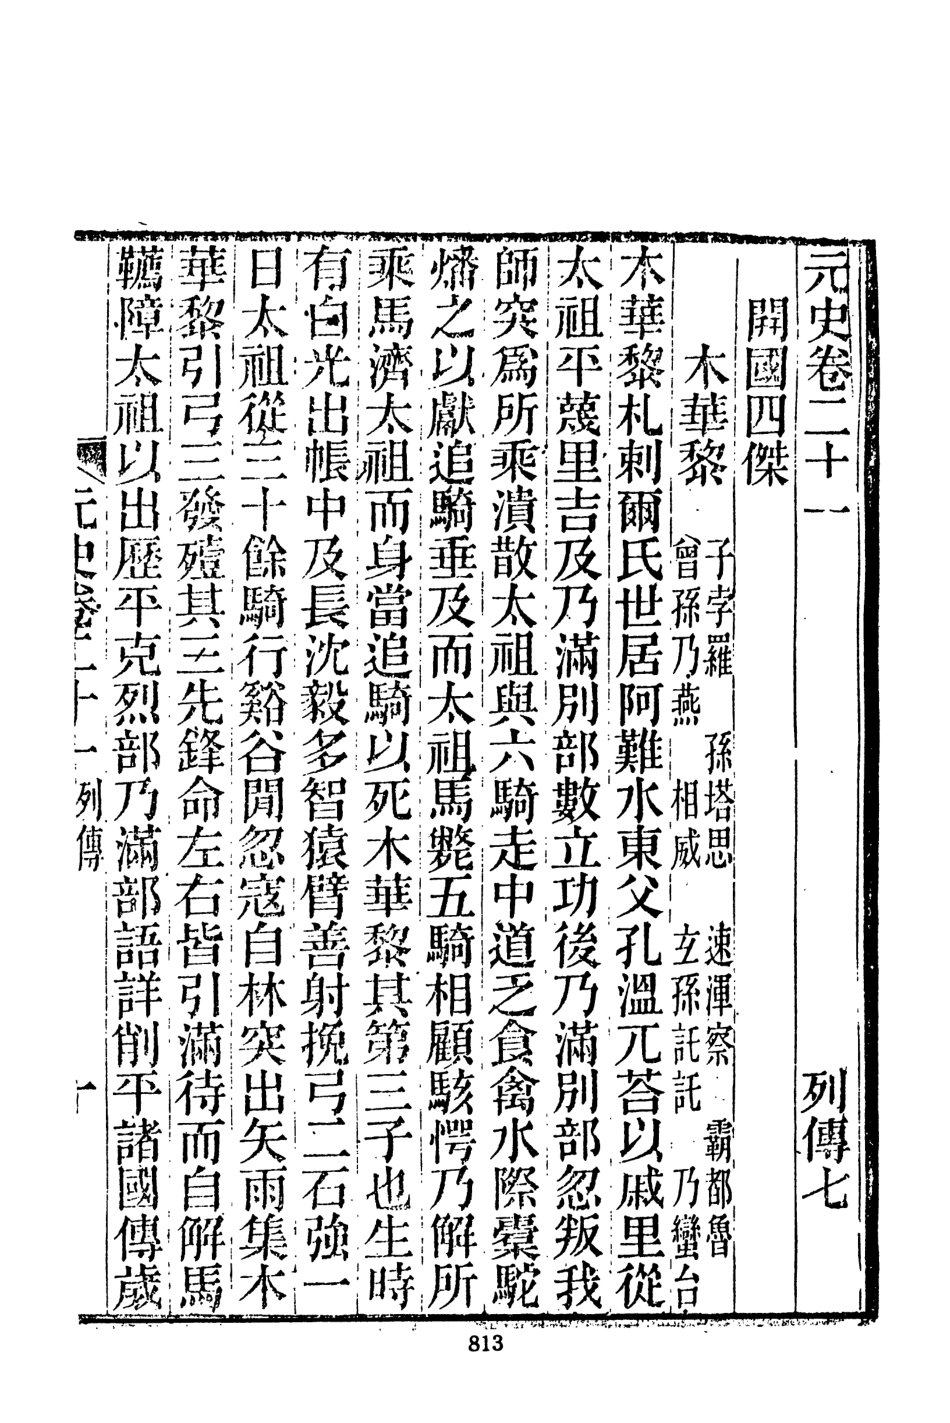 元史卷二十一 列傳七
開國四傑
木華黎 子孛羅 孫塔思 速渾察 霸都魯
曾孫乃燕 相威 玄孫託託 乃蠻台
木華黎札剌爾氏世居阿難水東父孔溫兀荅以戚里從
太祖平蔑里吉及乃滿別部數立功後乃滿別部忽叛我
師突爲所乘潰散太祖與六騎走中道乏食禽水際橐駝
燔之以獻追騎垂及而太祖馬斃五騎相顧駭愕乃解所
乘馬濟太祖而身當追騎以死木華黎其第三子也生時
有白光出帳中及長沈毅多智猿臂善射挽弓二石強一
日太祖從三十餘騎行谿谷閒忽寇自林突出矢雨集木
華黎引弓三發殪其三先鋒命左右皆引滿待而自解馬
韉障太祖以出歷平克烈部乃滿部語詳削平諸國傳歲
元史卷二十一 列傳 一
813